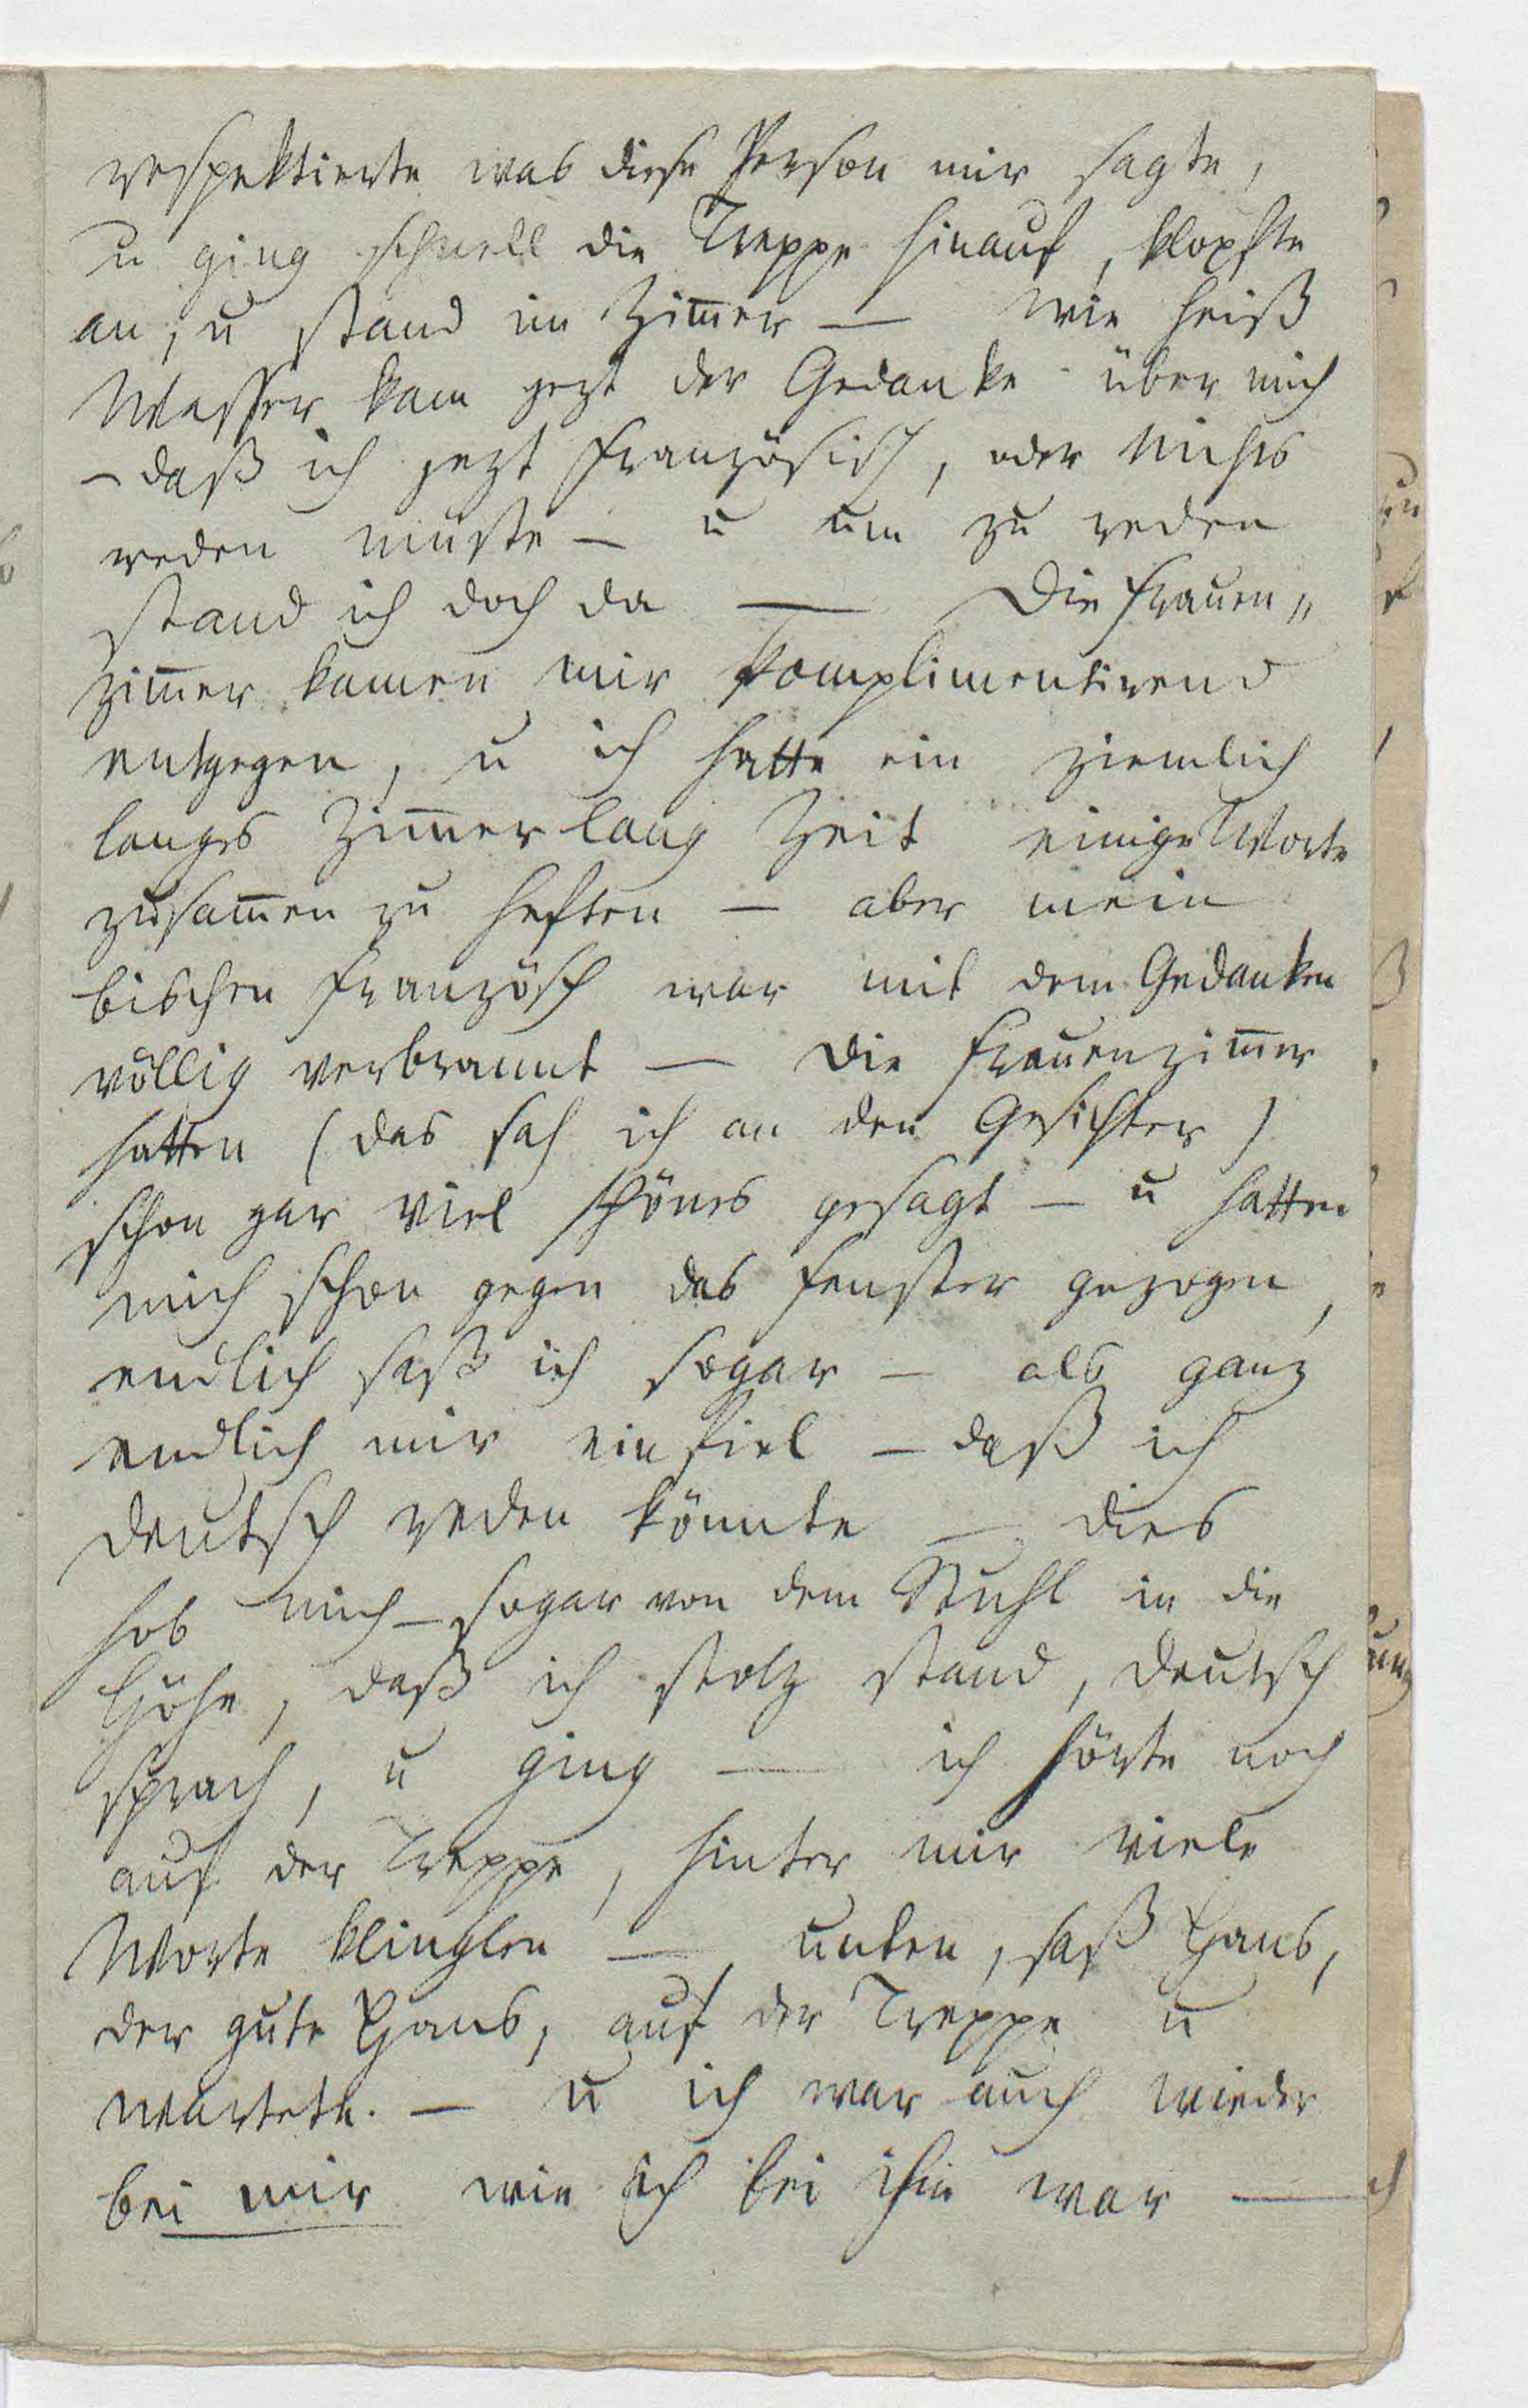 respektierte was diese Person mir sagte,
u ging schnell die Treppe hinauf, klopfte
an, u stand im Zim̄er — wie heiß
Wasser kam jezt der Gedanke über mich
– daß ich jezt französisch, oder Nichts
reden müste – u um zu reden
stand ich doch da — Die Frauen„
zim̄er kamen mir komplimentirend
entgegen, u ich hatte ein ziemlich
langes Zim̄er lang Zeit einige Worte
zusam̄en zu heften – aber mein
bischen französch war mit dem Gedanken
völlig verbrannt — die Frauenzim̄er
hatten (das sah ich an den Gesichter)
schon gar viel schönes gesagt – u hatten
mich schon gegen das Fenster gezogen,
endlich saß ich sogar – als ganz
endlich mir einfiel – daß ich
deutsch reden könnte – dies
hob mich – sogar von dem Stuhl in die
Höhe, daß ich stolz stand, deutsch
sprach, u ging — ich hörte noch
auf der Treppe, hinter mir viele
Worte klinglen — unten, saß Hans,
der gute Hans, auf der Treppe u
wartete. – u ich war auch wieder
bei mir wie ich bei ihm war —